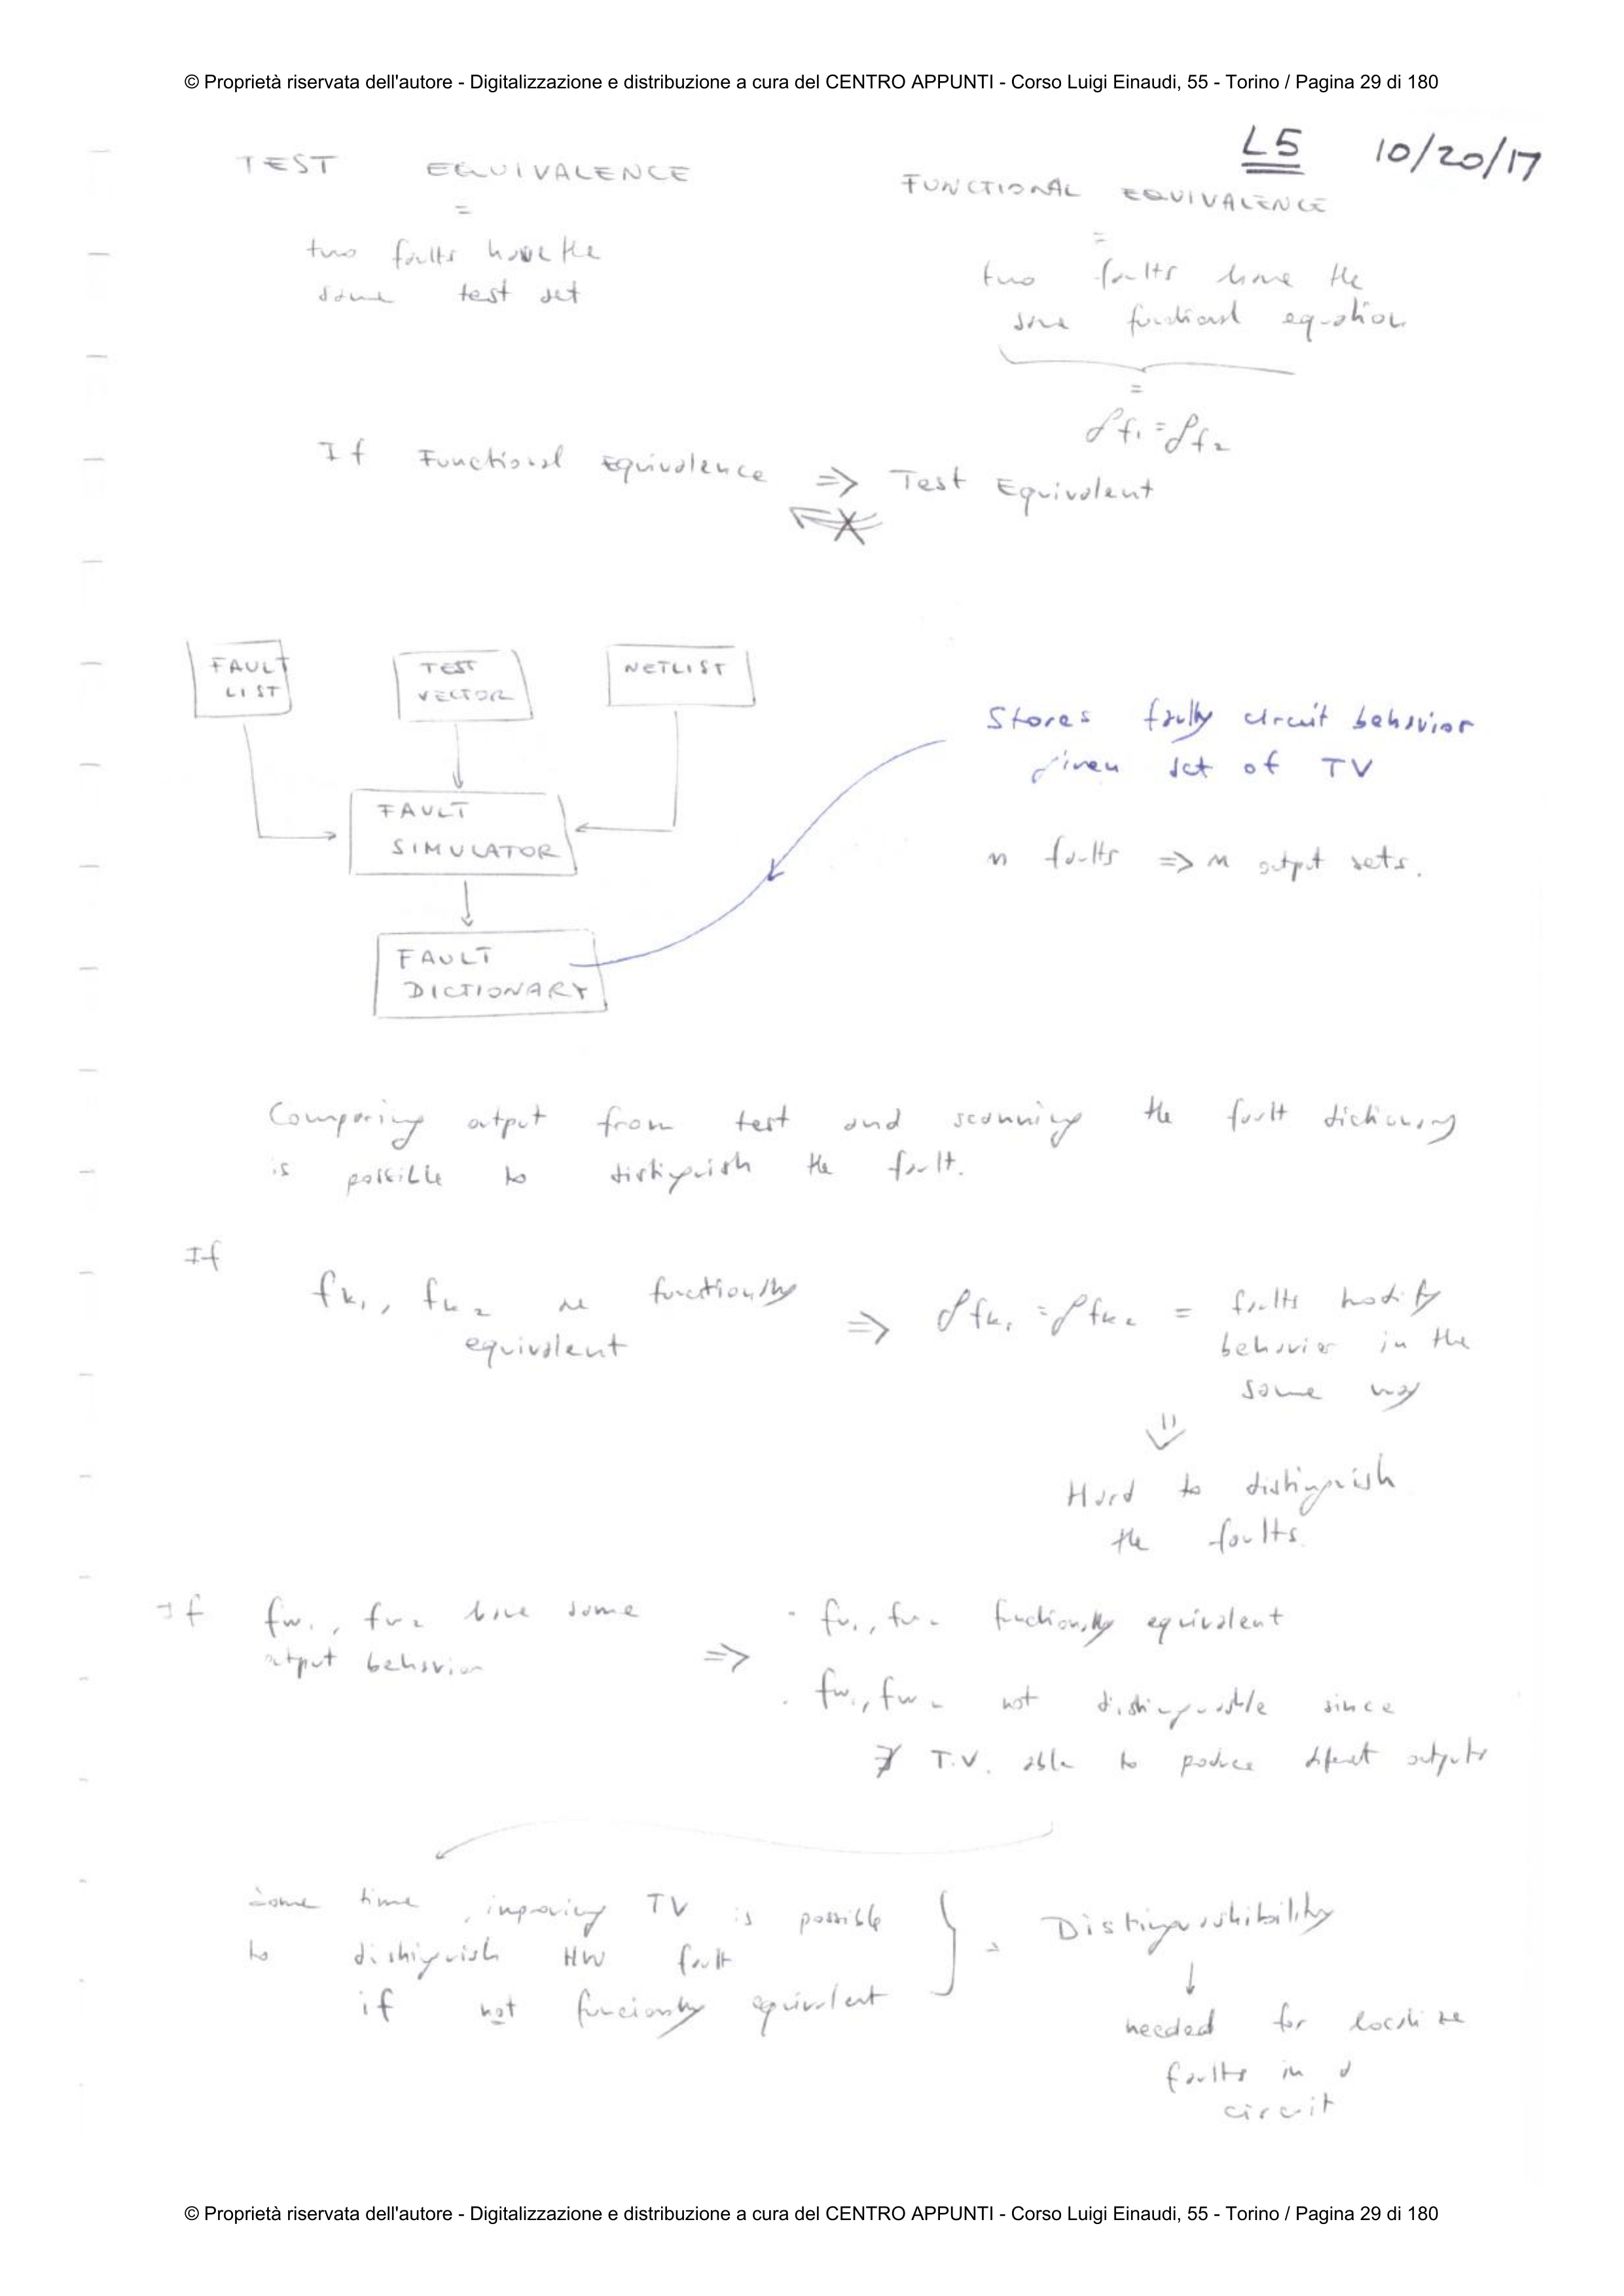 © Proprietà riservata dell'autore - Digitalizzazione e distribuzione a cura del CENTRO APPUNTI - Corso Luigi Einaudi, 55 - Torino / Pagina 29 di 180
L5 10/20/17
TEST EQUIVALENCE
=
two faults have the
same test set
FUNCTIONAL EQUIVALENCE
=
two faults have the
same functional equation
=
ff₁ = ff₂
If Functional Equivalence ⇒ Test Equivalent
FAULT
LIST
TEST
VECTOR
NETLIST
FAULT
SIMULATOR
FAULT
DICTIONARY
Stores faulty circuit behavior
given set of TV
n faults ⇒ n output sets.
Comparing output from test and scanning the fault dictionary
is possible to distinguish the fault.
If
fk₁, fk₂ are functionally
equivalent
⇒ ffk₁ = ffk₂ = faults modify
behavior in the
same way
⇓
Hard to distinguish
the faults.
If fw₁, fw₂ have same
output behavior
⇒
· fw₁, fw₂ functionally equivalent
· fw₁, fw₂ not distinguishable since
∄ T.V. able to produce different outputs
Some time, improving TV is possible
to distinguish HW fault
if not functionally equivalent
} = Distinguishibility
↓
needed for localize
faults in a
circuit
© Proprietà riservata dell'autore - Digitalizzazione e distribuzione a cura del CENTRO APPUNTI - Corso Luigi Einaudi, 55 - Torino / Pagina 29 di 180